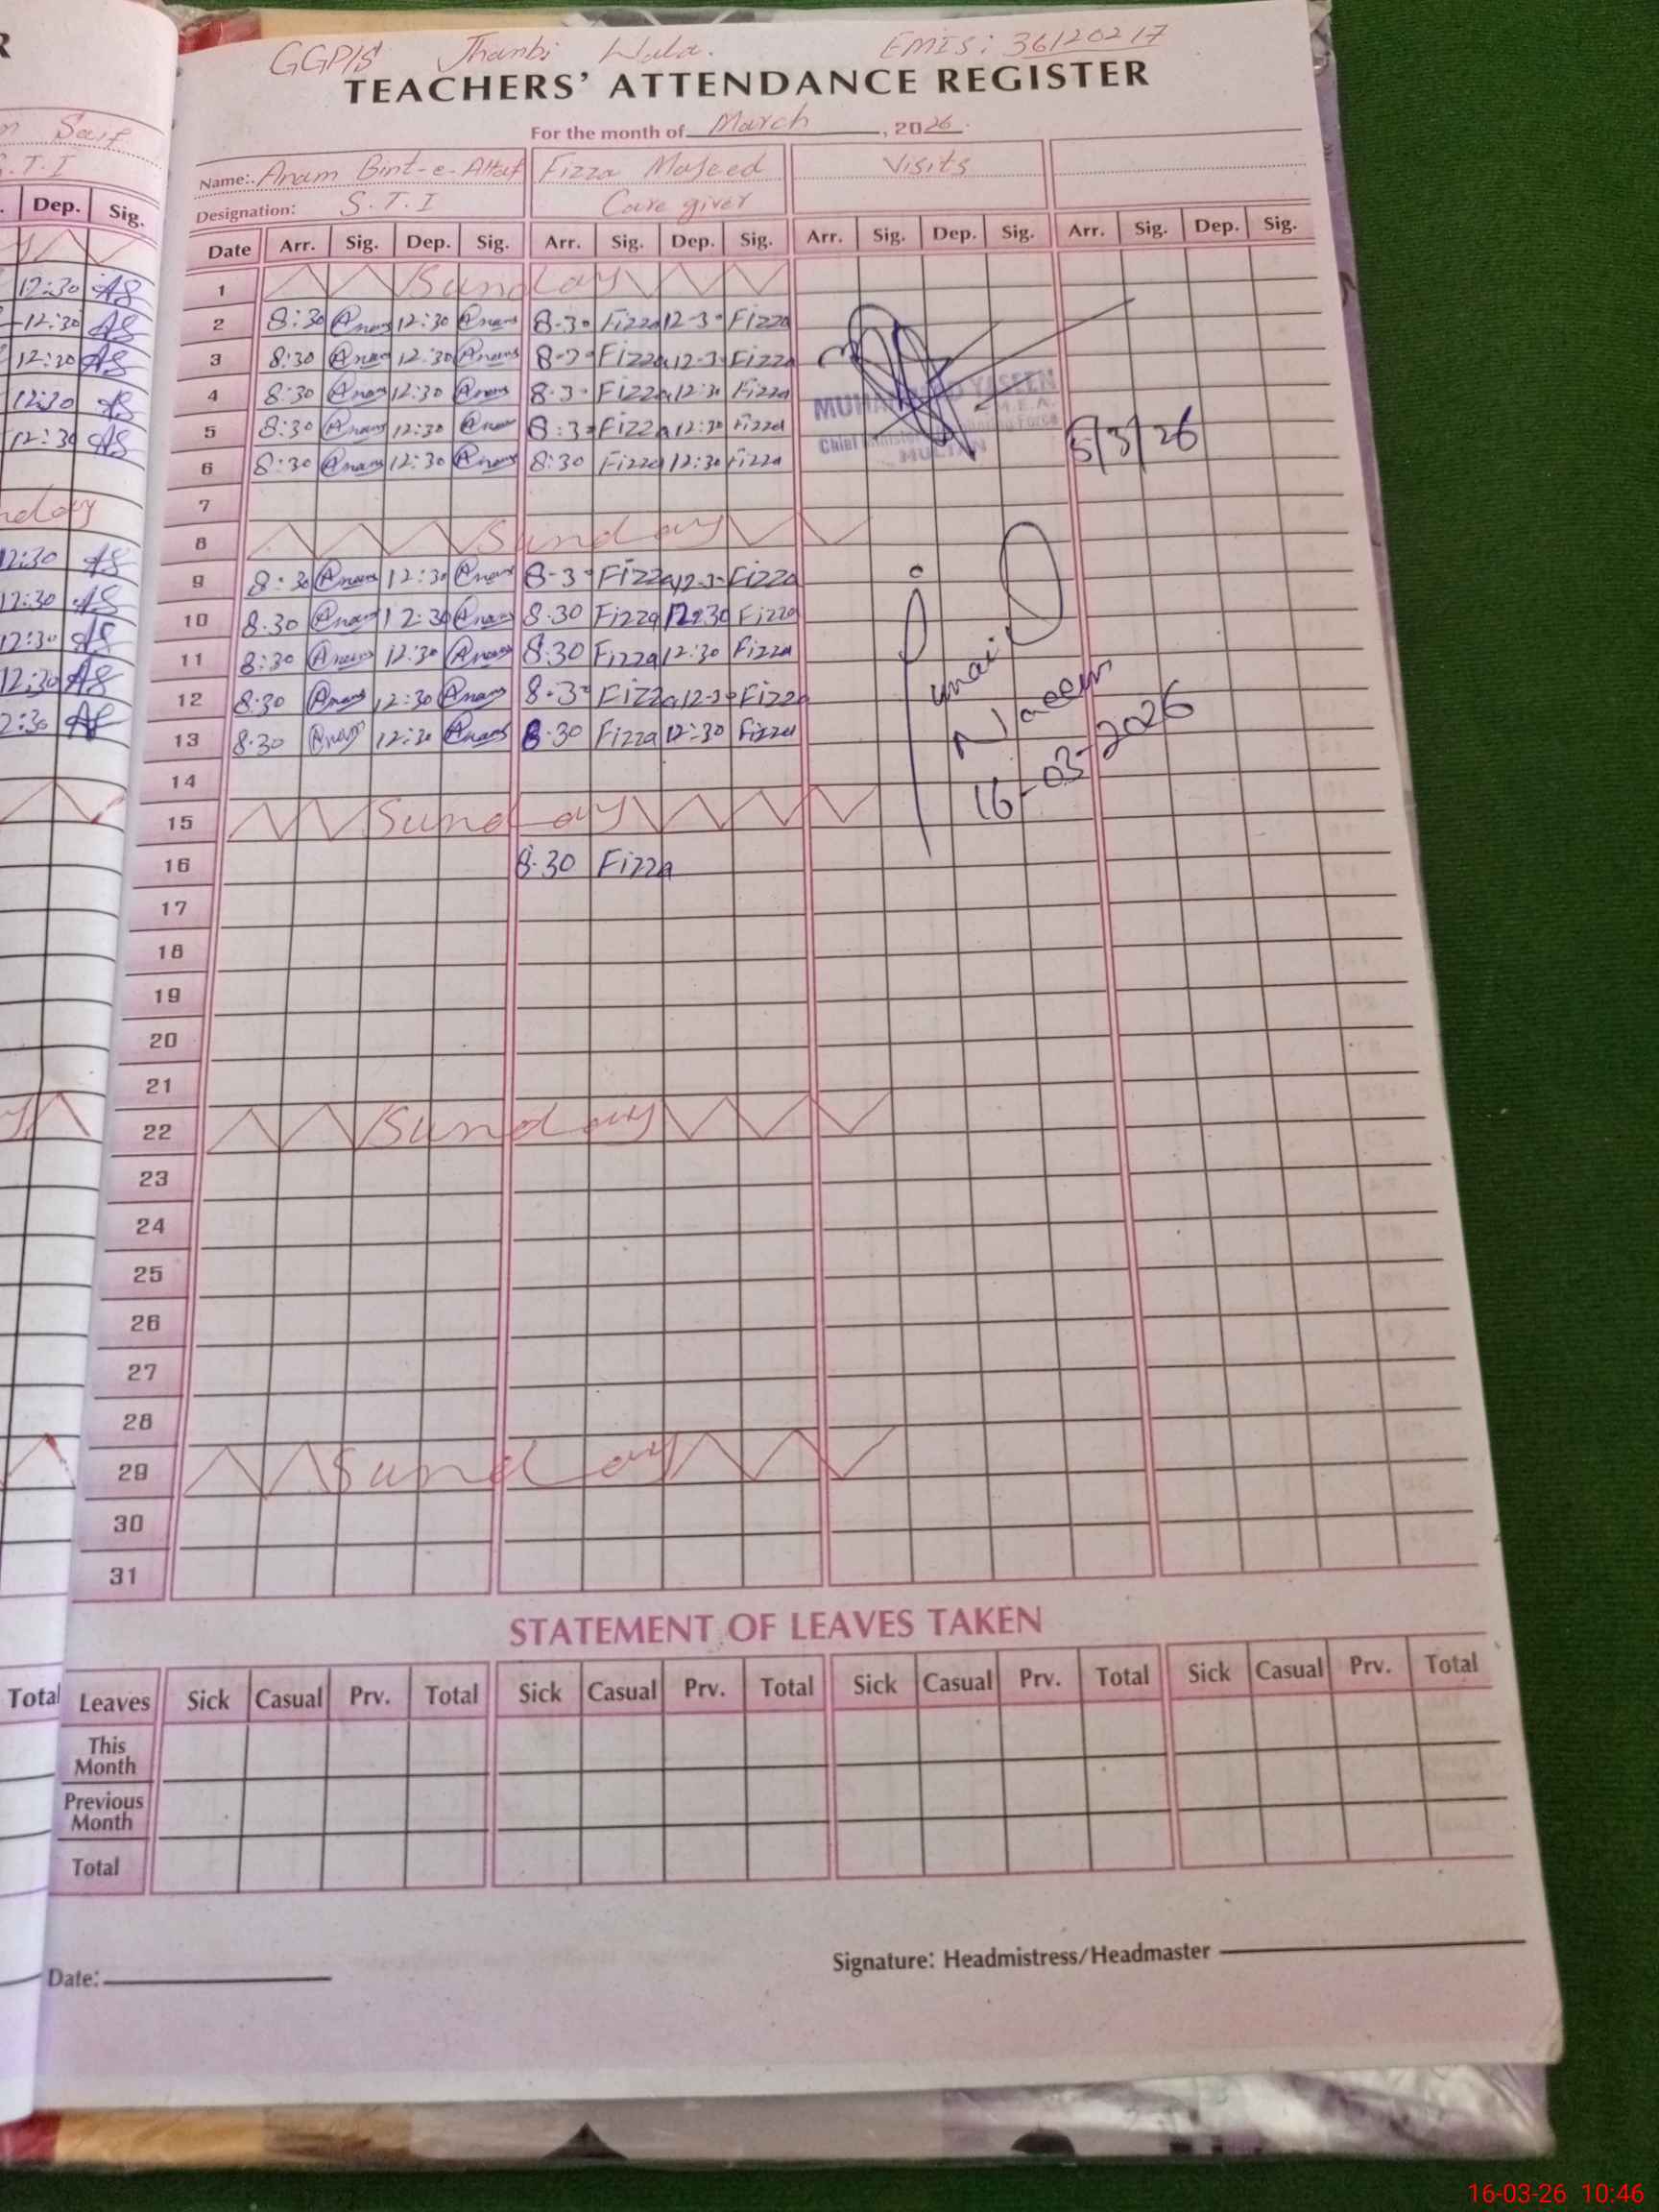 GGP/S Jhanbi Wala. EMIS: 36120217
TEACHERS' ATTENDANCE REGISTER
For the month of March, 2026.
Name: Anam Bint-e-Altaf Fizza Majeed Visits
Designation: S.T.I Care giver
Dep. Sig. Date Arr. Sig. Dep. Sig. Arr. Sig. Dep. Sig. Arr. Sig. Dep. Sig. Arr. Sig. Dep. Sig.
1 Sunday
12:30 AS 2 8:30 Anam 12:30 Anam 8-30 Fizza 12-30 Fizza
12:30 AS 3 8:30 Anam 12:30 Anam 8-30 Fizza 12-30 Fizza
12:30 AS 4 8:30 Anam 12:30 Anam 8-30 Fizza 12:30 Fizza
12:30 AS 5 8:30 Anam 12:30 Anam 8:30 Fizza 12:30 Fizza
MUHAMMAD YASEEN
M.E.A.
MULTAN
5/3/26
12:30 AS 6 8:30 Anam 12:30 Anam 8:30 Fizza 12:30 Fizza
7
8 Sunday
12:30 AS 9 8:30 Anam 12:30 Anam 8-30 Fizza 12-30 Fizza
12:30 AS 10 8:30 Anam 12:30 Anam 8.30 Fizza 12:30 Fizza
12:30 AS 11 8:30 Anam 12:30 Anam 8:30 Fizza 12:30 Fizza
12:30 AS 12 8:30 Anam 12:30 Anam 8-30 Fizza 12-30 Fizza
2:30 AS 13 8:30 Anam 12:30 Anam 8.30 Fizza 12:30 Fizza
Junaid
Naeem
16-03-2026
14
15 Sunday
16 8.30 Fizza
17
18
19
20
21
22 Sunday
23
24
25
26
27
28
29 Sunday
30
31
STATEMENT OF LEAVES TAKEN
Total Leaves Sick Casual Prv. Total Sick Casual Prv. Total Sick Casual Prv. Total Sick Casual Prv. Total
This Month
Previous Month
Total
Date: Signature: Headmistress/Headmaster
16-03-26 10:46